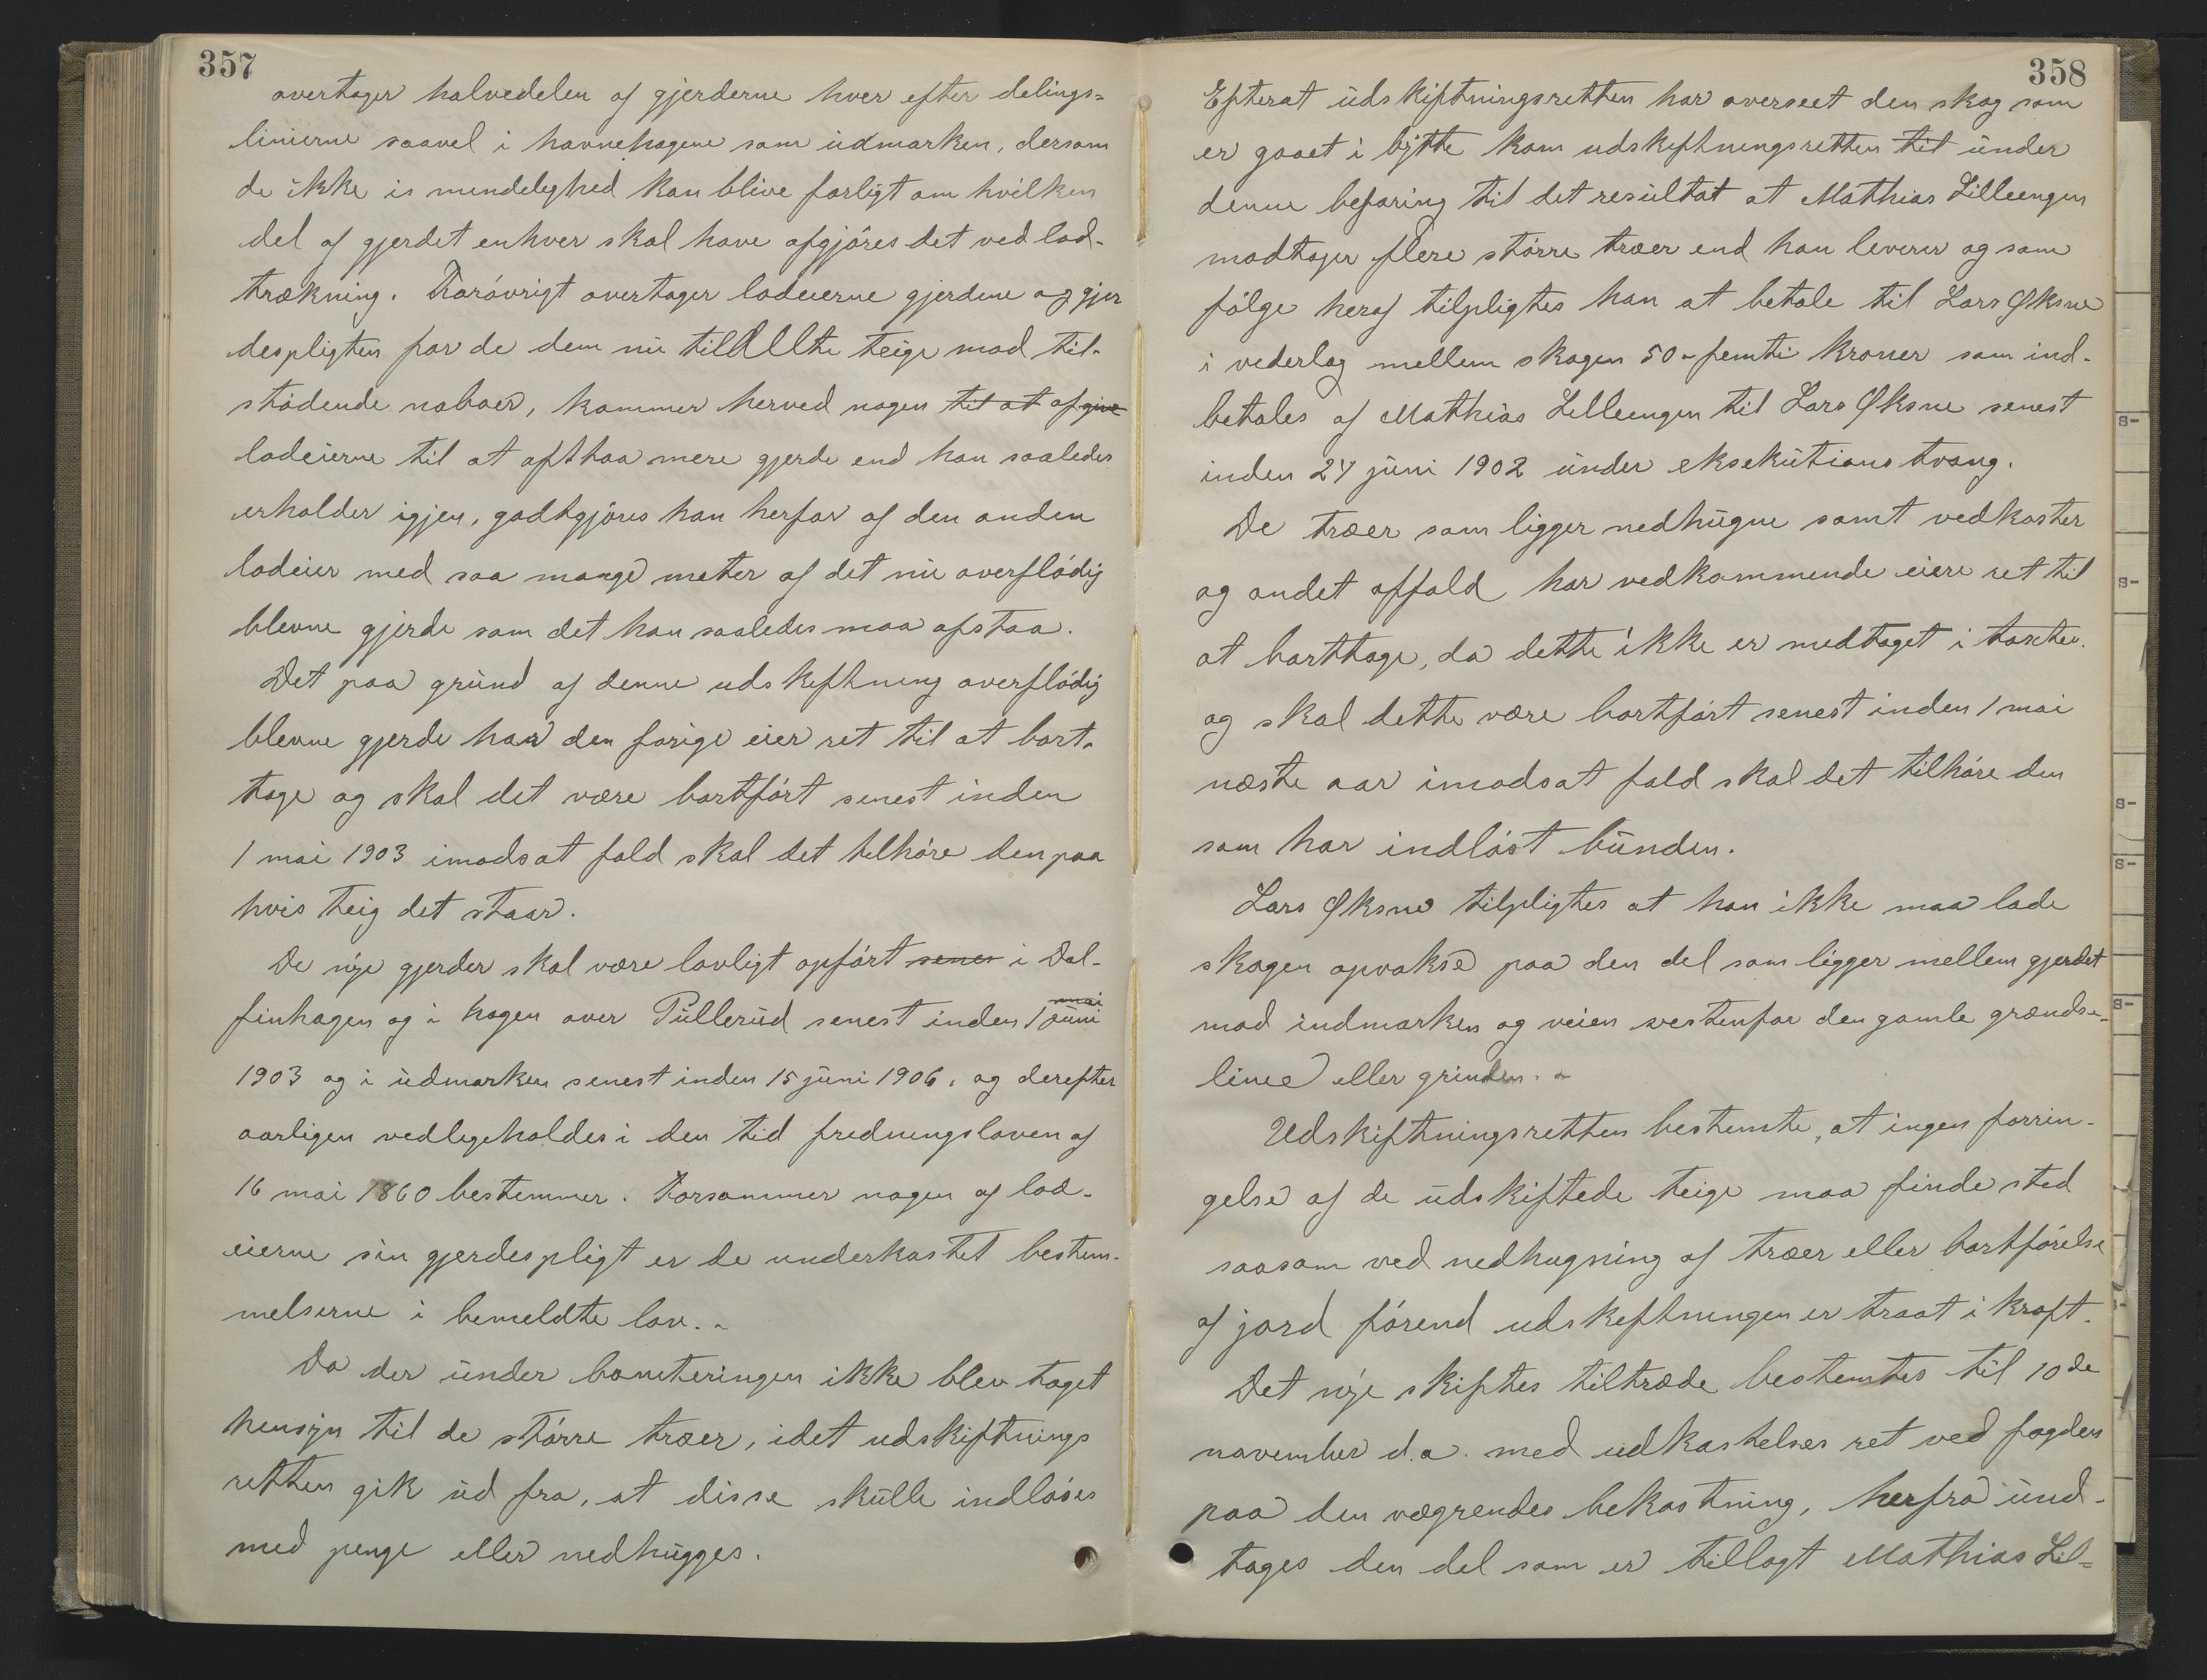 357
overtager halvedelen af gjerderne hver efter delings=
linierne saavel i havnehagene som udmarken, dersom
de ikke i mindelighed kan blive forligt om hvilken
del af gjerdet enhver skal have afgjöres det ved lod-
trækning. Forövrigt overtager lodeierne gjerdene og gjer
despligten for de dem nu tildelte teige mod til-
stödende naboer, kommer herved nogen til at afgive
lodeierne til at afstaa mere gjerde end han saaledes
erholder igjen, godtgjöres han herfor af den anden
lodeier med saa mange meter af det nu overflödig
blevne gjerde som det han saaledes maa afstaa.
Det paa grund af denne udskiftning overflödig
blevne gjerde har den forige eier ret til at bort-
tage og skal det være bortfört senest inden
1 mai 1903 imodsat fald skal det tilhöre den paa
hvis teig det staar.
De nye gjerder skal være lovligt opfört senes i Dal-
finhagen og i hagen over Pullerud senest inden 1 mai juni
1903 og i udmarken senest inden 15 juni 1906, og derefter
aarligen vedligeholdes i den tid fredningsloven af
16 mai 1860 bestemmer. Forsømmer nogen af lod-
eierne sin gjerdespligt er de underkastet bestem-
melserne i bemeldte lov. -
Da der under boniteringen ikke blev taget
hensyn til de större træer, idet udskiftnings
retten gik ud fra, at disse skulle indlöses
med penge eller nedhugges.
358
Efterat udskiftningsretten har overseet den skog som
er gaaet i bytte kom udskiftningsretten til under
denne befaring til det resultat at Mathias Lilleengen
modtager flere större træer end han leverer og som
fölge heraf tilpligtes han at betale til Lars Øksne
i vederlag mellem skogen 50 - femti kroner som ind-
betales af Mathias Lilleengen til Lars Øksne senest
inden 24 juni 1902 under eksekutions tvang.
De træer som ligger nedhugne samt vedkaster
og andet affald har vedkommende eiere ret til
at borttage, da dette ikke er medtaget i taxten.
og skal dette være bortfört senest inden 1 mai
næste aar imodsat fald skal det tilhöre den
som har indlöst bunden.
Lars Øksne tilpligtes at han ikke maa lade
skogen opvokse paa den del som ligger mellem gjerdet
mod indmarken og veien vestenfor den gamle grændse-
linie eller grinden. -
Udskiftningsretten bestemte, at ingen forrin-
gelse af de udskiftede teige maa finde sted
saasom ved nedhugning af træer eller bortförelse
af jord förend udskiftningen er traat i kraft.
Det nye skiftes tiltræde bestemtes til 10de
november d.a. med udkastelses ret ved fogden
paa den vægrendes bekostning, herfra und-
tages den del som er tillagt Mathias Lil=
s-
s-
s-
s-
s-